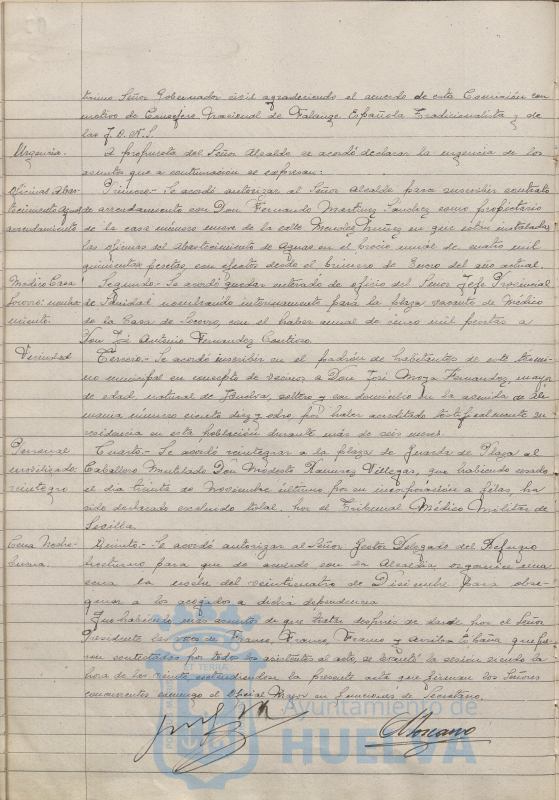 trísimo Señor Gobernador civil agradeciendo el acuerdo de esta Comisión con
motivo de Consejero Nacional de Falange Española Tradicionalista y de
las J.O.N.S.
Urgencia.
A propuesta del Señor Alcalde se acordó declarar la urgencia de los
asuntos que a continuación se expresan:
Oficinas Abas-
tecimiento Aguas
arrendamiento
Primero.- Se acordó autorizar al Señor Alcalde para suscribir contrato
de arrendamiento con Don Fernando Martínez Sánchez como propietario
de la casa número nueve de la calle Méndez Núñez en que están instaladas
las oficinas del Abastecimiento de Aguas en el precio anual de cuatro mil
quinientas pesetas, con efectos desde el primero de Enero del año actual.
Médico Casa
Socorro: nombra-
miento.
Segundo.- Se acordó quedar enterado de oficio del Señor Jefe Provincial
de Sanidad nombrando internamente para la plaza vacante de Médico
de la Casa de Socorro, con el haber anual de cinco mil pesetas a
Don José Antonio Fernández
Vecindad
Tercero.- Se acordó inscribir en el padrón de habitantes de este térmi-
no municipal en concepto de vecinos a Don José Moya Fernández, mayor
de edad, natural de Huelva, soltero y con domicilio en la avenida de Ale-
mania número ciento diez y ocho por haber acreditado testificalmente su
residencia en esta población durante más de seis meses.
Personal
movilizado:
reintegro
Cuarto.- Se acordó reintegrar a la plaza de Guarda de Plaza al
Caballero Mutilado Don Modesto Ramírez Villegas, que habiendo cesado
el día treinta de Noviembre último por su incorporación a filas, ha
sido declarado excluido total por el Tribunal Médico Militar de
Sevilla.
Cena Noche-
buena.
Quinto.- Se acordó autorizar al Señor Gestor Delegado del Refugio
nocturno para que de acuerdo con la Alcaldía, organice una
cena la noche del veinticuatro de Diciembre para obse-
quiar a los acogidos a dicha dependencia.
No habiendo más asuntos de que tratar después de dar por el Señor
Presidente las voces de Franco, Franco, Franco y Arriba España que fue-
ron contestadas por todos los asistentes al acto, se levantó la sesión siendo la
hora de las veinte extendiéndose la presente acta que firman los Señores
concurrentes conmigo el Oficial Mayor en funciones de Secretario.
Ayuntamiento de
HUELVA